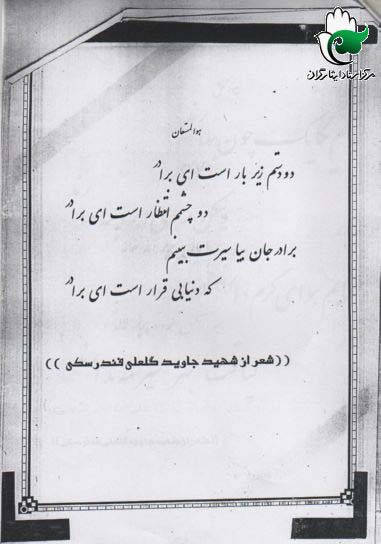 مرکز اسناد ایثارگران
هوالمستعان
دو دستم زیر بار است ای برادر
دو چشم انتظار است ای برادر
برادر جان بیا سیرت ببینم
که دنیا بی قرار است ای برادر
((شعر از شهید جاوید گلعلی قندرسکی ))